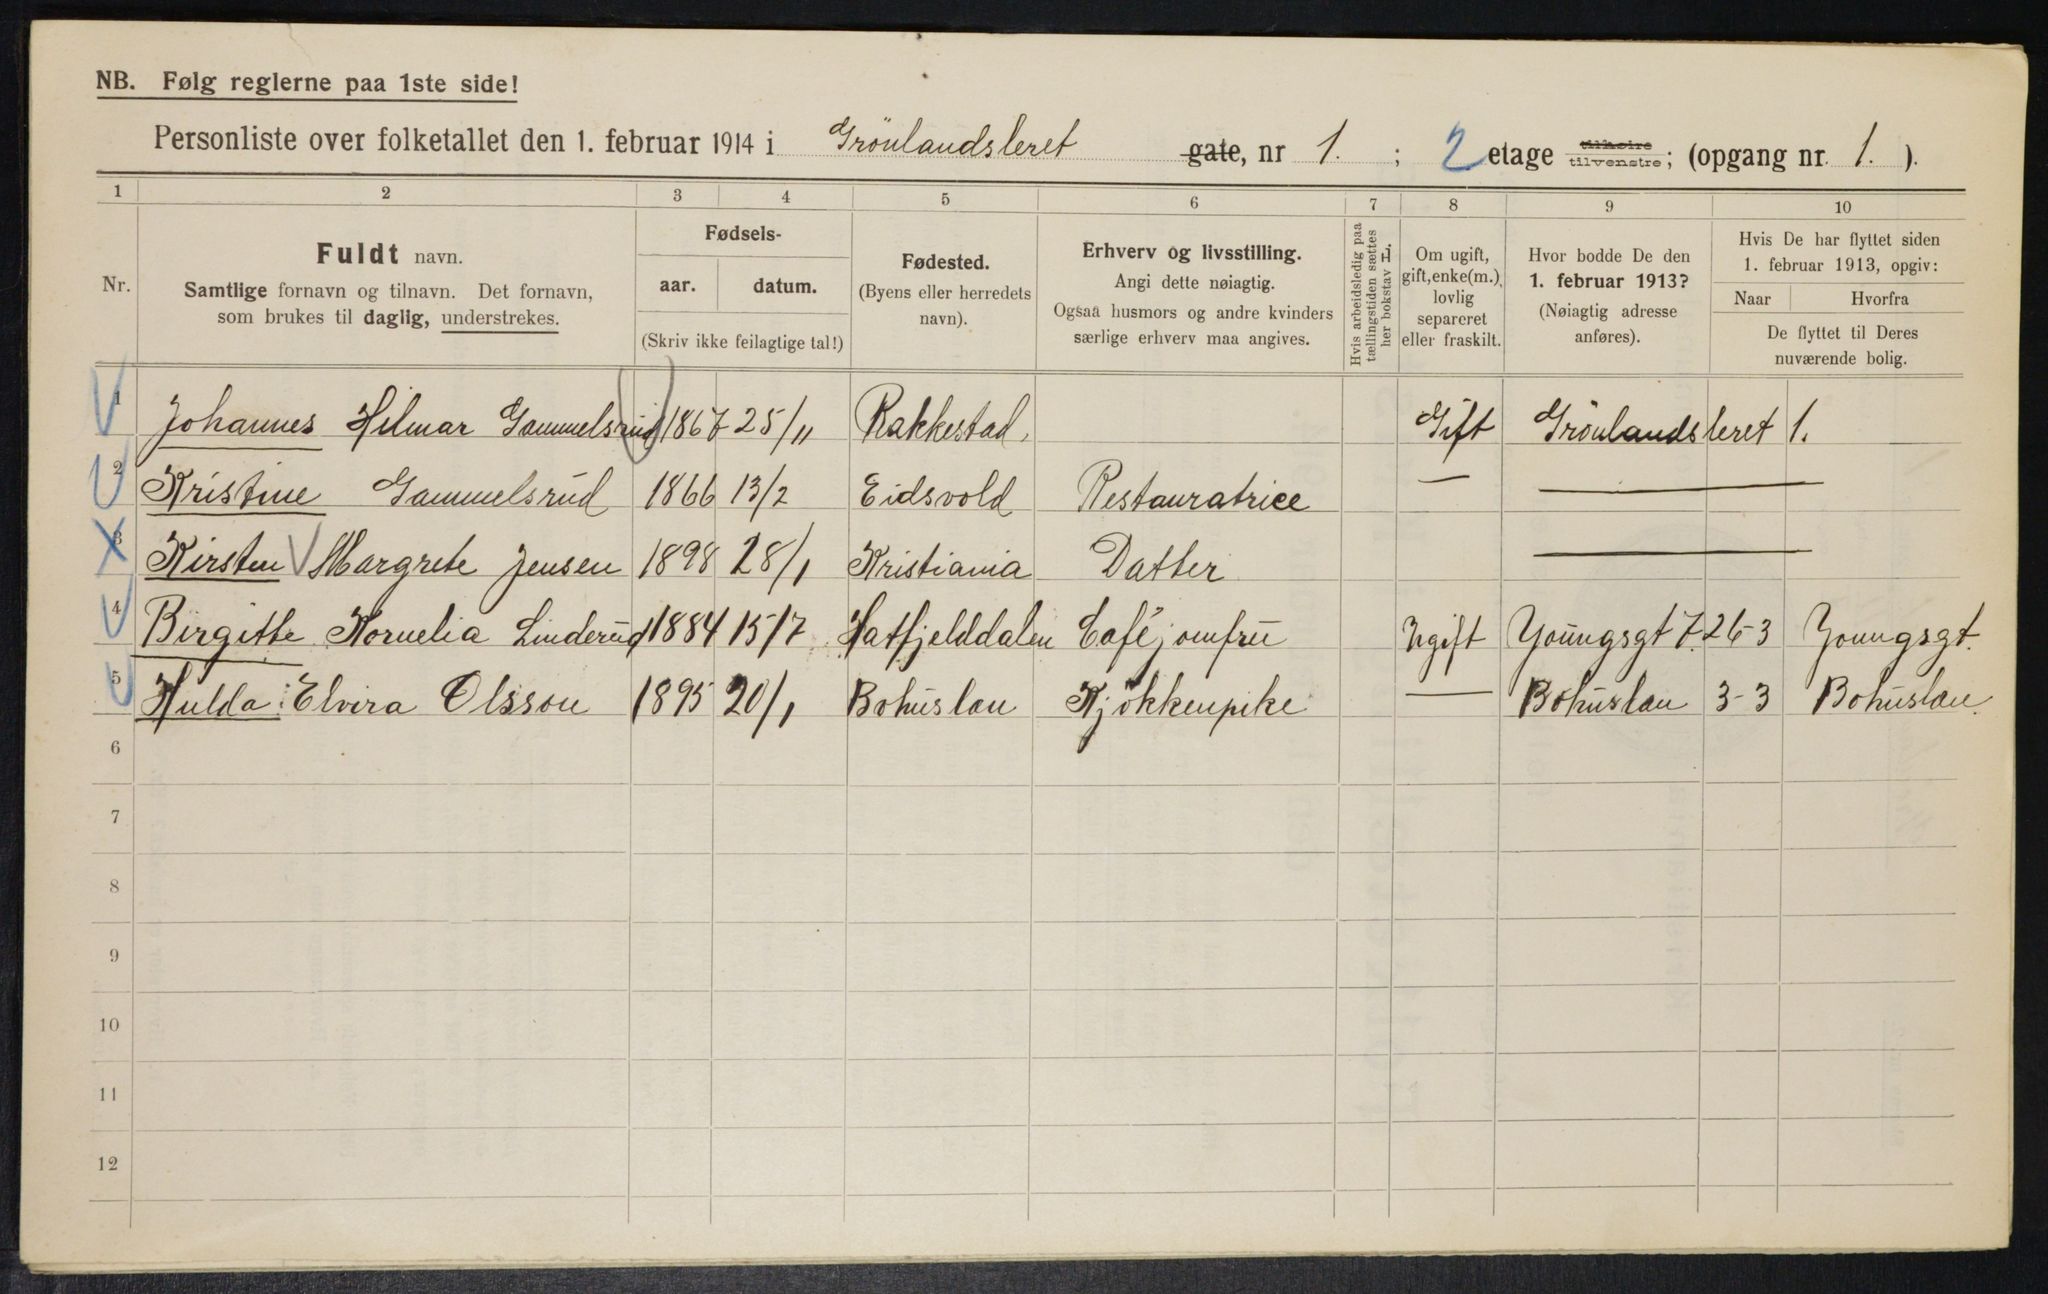 NB. Følg reglerne paa 1ste side!
Personliste over folketallet den 1. februar 1914 i Grönlandsleret gate, nr 1. ; 2 etage tilhøire tilvenstre; (opgang nr. 1. ).
1 2 3 4 5 6 7 8 9 10
Nr.
Fuldt navn.
Samtlige fornavn og tilnavn. Det fornavn,
som brukes til daglig, understrekes.
Fødsels-
aar. datum.
(Skriv ikke feilagtige tal!)
Fødested.
(Byens eller herredets
navn).
Erhverv og livsstilling.
Angi dette nøiagtig.
Ogsaa husmors og andre kvinders
særlige erhverv maa angives.
Hvis arbeidsledig paa
tællingstiden sættes
her bokstav L.
Om ugift,
gift, enke(m.),
lovlig
separeret
eller fraskilt.
Hvor bodde De den
1. februar 1913?
(Nøiagtig adresse
anføres).
Hvis De har flyttet siden
1. februar 1913, opgiv:
Naar Hvorfra
De flyttet til Deres
nuværende bolig.
1 Johannes Hilmar Gammelsrud 1867 25/11 Rakkestad. Gift Grönlandsleret 1.
2 Kristine Gammelsrud 1866 13/2 Eidsvold Restauratrice — —
3 Kirsten Margrete Jensen 1898 28/1 Kristiania Datter —
4 Birgitte Kornelia Linderud 1884 15/7 Hatfjelddalen Caféjomfru Ugift Youngsgt 7. 26-3 Youngsgt.
5 Hulda Elvira Olsson 1895 20/1 Bohuslan Kjökkenpike — Bohuslan 3-3 Bohuslan.
6
7
8
9
10
11
12